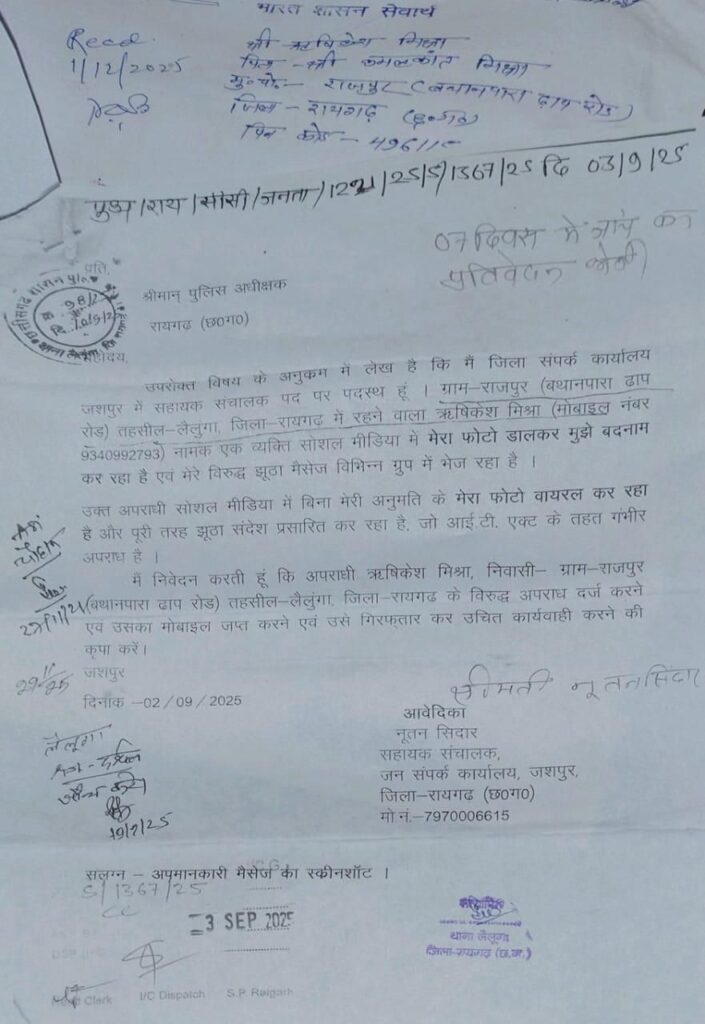 भारत शासन सेवार्थ
Recd.
1/12/2025
श्री ऋषिकेश मिश्रा
पिता - श्री कमलकांत मिश्रा
मु०पो०- राजपुर (बथानपारा ढाप रोड)
जिला - रायगढ़ (छ०ग०)
पिन कोड - 49611
/राय/सीसी/जनता/ /25/S/1367/25 दि 03/9/25
07 दिवस में जांच कर
प्रतिवेदन
प्रति,
श्रीमान् पुलिस अधीक्षक
रायगढ़ (छ०ग०)
महोदय,
उपरोक्त विषय के अनुकम में लेख है कि मैं जिला संपर्क कार्यालय
जशपुर में सहायक संचालक पद पर पदस्थ हूं । ग्राम-राजपुर (बथानपारा ढाप
रोड) तहसील-लैलुंगा, जिला-रायगढ़ में रहने वाला ऋषिकेश मिश्रा (मोबाइल नंबर
9340992793) नामक एक व्यक्ति सोशल मीडिया में मेरा फोटो डालकर मुझे बदनाम
कर रहा है एवं मेरे विरुद्ध झूठा मैसेज विभिन्न ग्रुप में भेज रहा है ।
उक्त अपराधी सोशल मीडिया में बिना मेरी अनुमति के मेरा फोटो वायरल कर रहा
है और पूरी तरह झूठा संदेश प्रसारित कर रहा है, जो आई.टी. एक्ट के तहत गंभीर
अपराध है ।
मैं निवेदन करती हूं कि अपराधी ऋषिकेश मिश्रा, निवासी– ग्राम-राजपुर
(बथानपारा ढाप रोड) तहसील-लैलुंगा, जिला-रायगढ के विरुद्ध अपराध दर्ज करने
एवं उसका मोबाइल जप्त करने एवं उसे गिरफ्तार कर उचित कार्यवाही करने की
कृपा करें।
जशपुर
दिनांक -02/09/2025
श्रीमती नूतन सिदार
आवेदिका
नूतन सिदार
सहायक संचालक,
जन संपर्क कार्यालय, जशपुर,
जिला-रायगढ (छ०ग०)
मो नं.-7970006615
लैलूंगा
सलग्न - अपमानकारी मैसेज का स्क्रीनशॉट ।
S/1367/25
CC
3 SEP 2025
थाना लैलूंगा
जिला-रायगढ़ (छ.ग.)
Clerk I/C Dispatch S.P. Raigarh